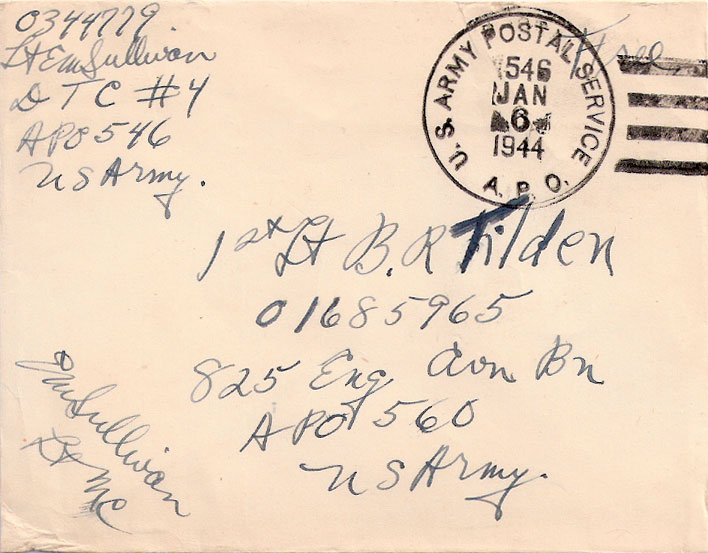 0344779
Lt EM Sullivan
D T C #4
APO 546
US Army.
U.S. ARMY POSTAL SERVICE
546
JAN
6
1944
A.P.O.
Free
1st Lt B. R Tilden
01685965
825 Eng Avn Bn
APO 560
US Army.
EM Sullivan
Lt MC